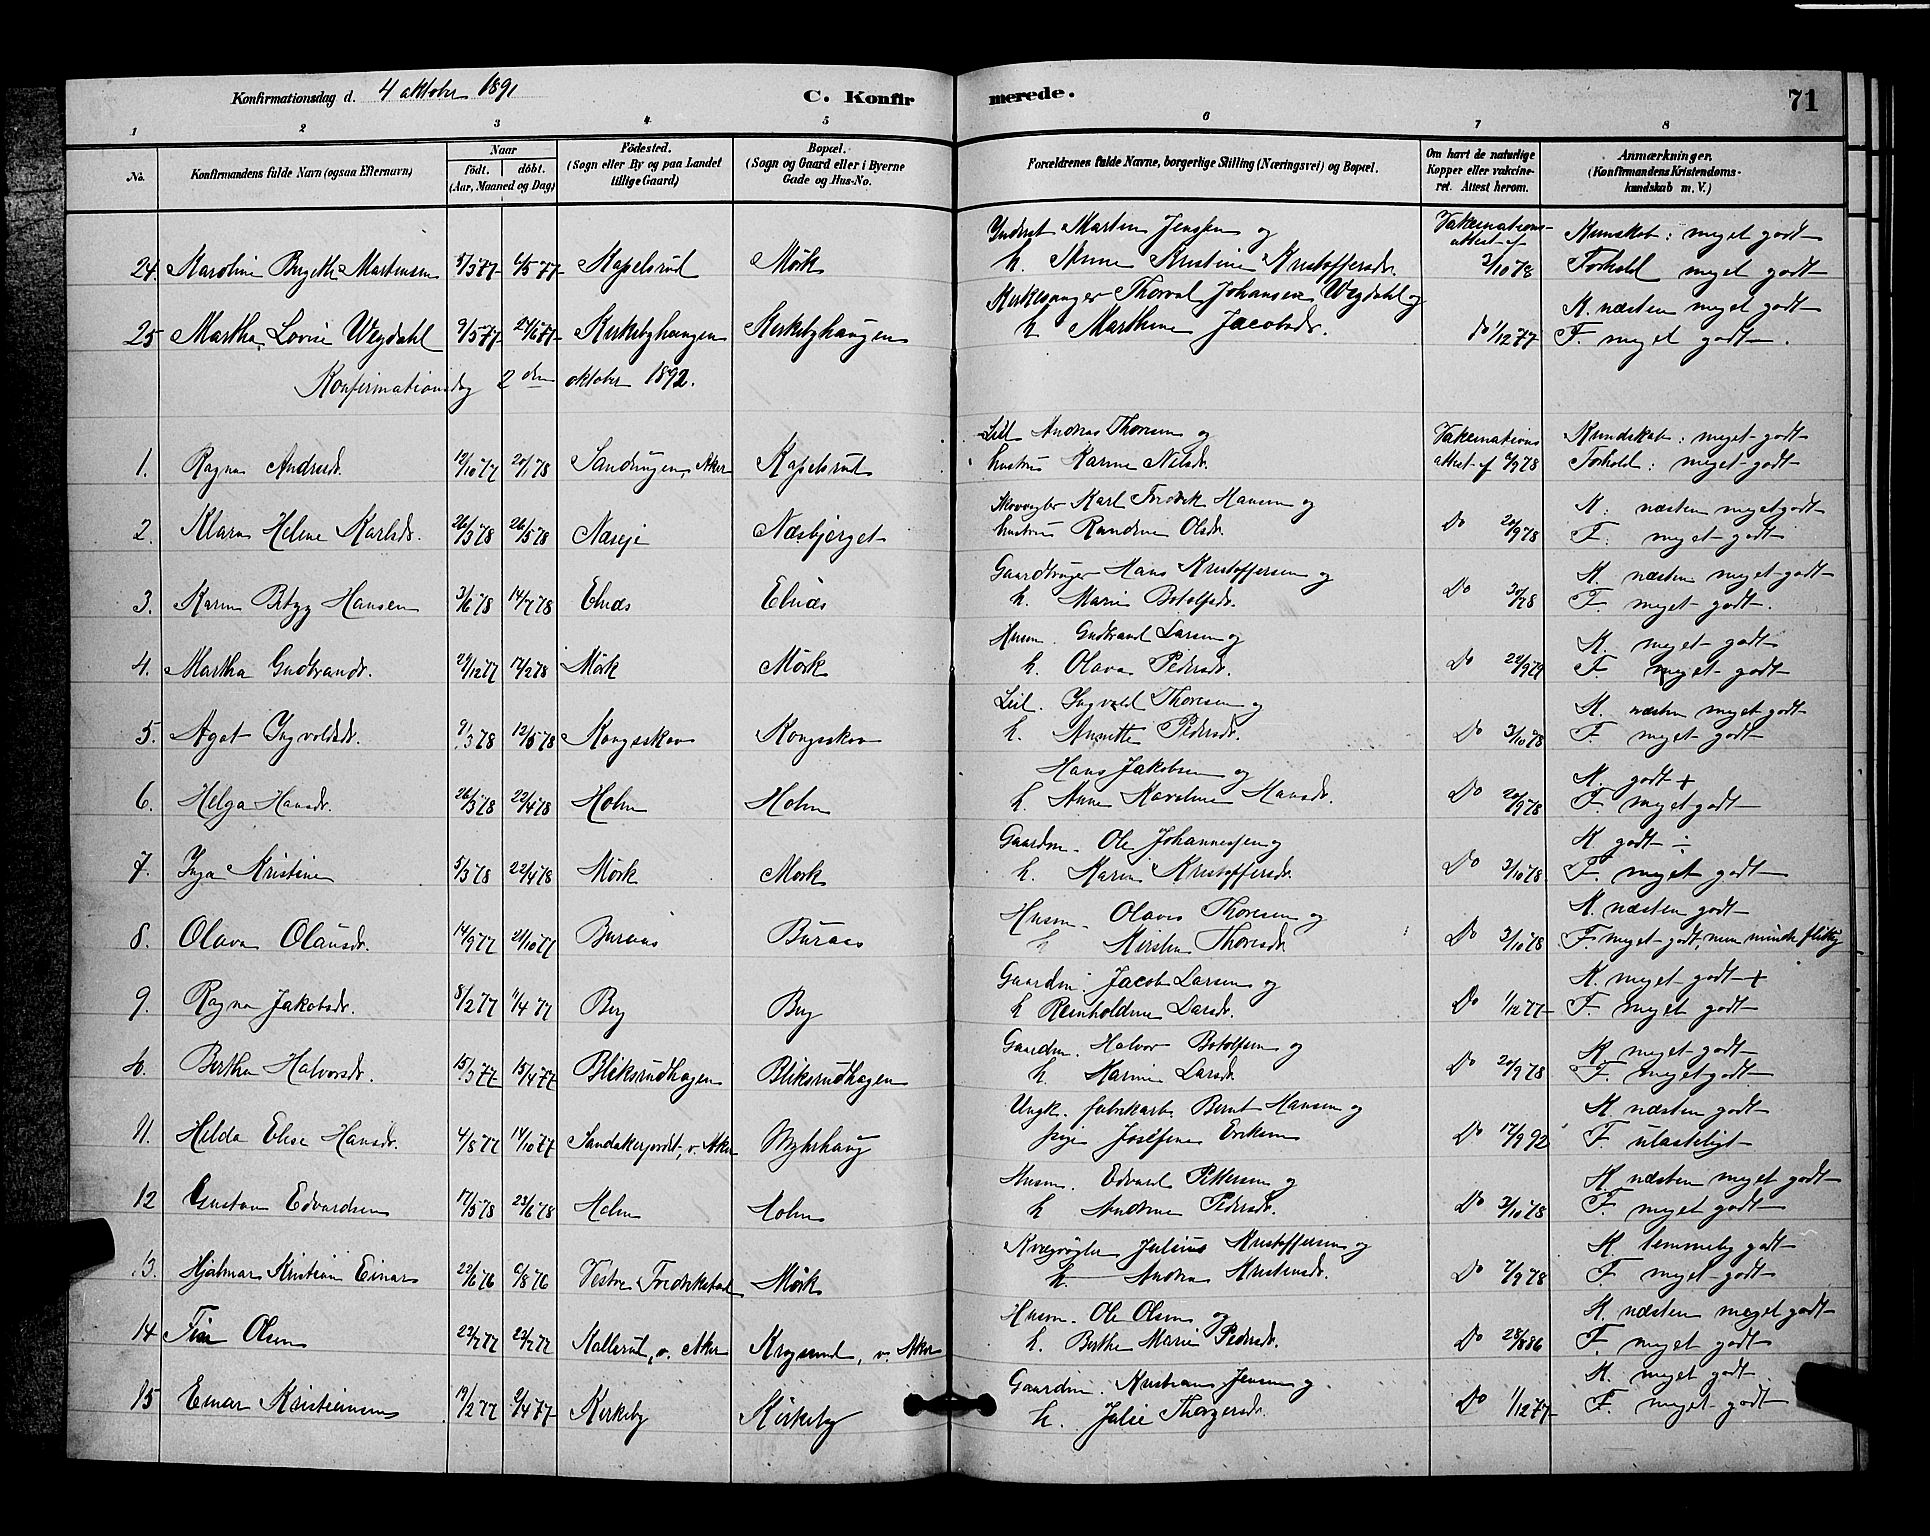 Konfirmationsdag d. 4 oktober 1891
C. Konfirmerede.
71
1 2 3 4 5 6 7 8
No. Konfirmandens fulde Navn (ogsaa Efternavn) Naar födt. döbt. (Aar, Maaned og Dag) Födested. (Sogn eller By og paa Landet tillige Gaard) Bopæl. (Sogn og Gaard eller i Byerne Gade og Hus-No. Forældrenes fulde Navne, borgerlige Stilling (Næringsvei) og Bopæl. Om havt de naturlige Kopper eller vakcineret. Attest herom. Anmærkninger. (Konfirmandens Kristendomskundskab m. V.)
Inderst Martin Jensen og Vakcinations- Kunskab: meget godt
24. Karoline Birgitte Martinsen 5/3 77 6/5 77 Kapelsrud Mörk h. Anne Kristine Kristoffersdr. attest af 3/10 78 Forhold meget godt
Kirkesanger Thorval Johansen Wegdahl og K. næsten meget godt
25 Martha Lovise Wegdahl 9/5 77 24/6 77 Kirkebyhaugen Kirkebyhaugen h Marthine Jacobsdr. do 1/12 77 F. meget godt.
Konfirmationsdag 2den oktober 1892.
Leil Andreas Thoresen og Vakcinations Kundskab: meget godt
1. Ragna Andrsdr. 12/10 77 20/1 78 Sandungen, Aker Kapelsrud hustru Karine Nilsdr. attest af 6/9 78 Forhold: meget godt
Skovvogter Karl Fredrik Hansen og K: næsten meget godt
2. Klara Helene Karlsdr. 26/3 78 26/5 78 Næseje Næsbjerget hustru Randine Olsdr. Do 20/9 78 F: meget godt
Gaardbruger Hans Kristoffersen og K. næsten meget godt
3. Karen Betzy Hansen 3/6 78 14/7 78 Elnæs Elnæs h. Marie Botolfsdr. Do F. meget godt.
Husm. Gudbrand Larsen og K. meget godt
4. Martha Gudbrandr. 29/12 77 17/2 78 Mörk Mörk h. Olava Pedersdr. Do 22/9 79 F meget godt
Leil. Ingvald Thoresen og K. næsten meget godt
5. Agot Ingvoldsdr. 9/3 78 12/5 78 Kongsskov Kongsskov h. Annette Pedersdr. Do 3/10 78 F. meget godt
Hans Jakobsen og K. godt +
6. Helga Hansdr. 26/3 78 22/4 78 Holm Holm h. Anne Karoline Hansdr. Do 20/9 78 F. meget godt
Gaardm. Ole Johannessen og K godt ÷
7. Inga Kristine 5/3 78 22/4 78 Mörk Mörk h. Karin Kristoffersdr. Do 3/10 78 F. meget godt
Husm. Olaves Thoresen og K. næsten godt
8. Olava Olausdr. 14/9 77 21/10 77 Buraas Buraas h Kirsten Thoresdr. Do 3/10 78 F. meget godt, men mindre flittig
Gaardm. Jacob Larsen og K. meget godt +
9. Ragna Jakobsdr. 8/2 77 1/4 77 By By h Reinholdine Larsdr. Do 1/12 77 F. meget godt
Gaardm. Halvor Botolfsen og K meget godt
10. Bertha Halvorsdr. 15/3 77 15/4 77 Bliksrudhagen Bliksrudhagen h. Karine Larsdr. Do 20/9 78 F. meget godt
Ungk. fabrikarb. Bernt Hansen og K. næsten godt
11. Hilda Elise Hansdr. 4/8 77 14/10 77 Sandakerjordet, v. Aker Myhrhaug pige Josefine Eriksen Do 17/9 92 F. ulasteligt
Husm. Edvard Pettersen og K næsten meget godt
12 Gustav Edvardsen 17/5 78 23/6 78 Holm Holm h Andrine Pedersdr. Do 3/10 78 F. meget godt
Kvægrögter Julius Kristoffersen og K. temmelig godt
13. Hjalmar Kristian Einar 22/6 76 6/8 76 Vestre Fredrikstad Mörk h. Andrea Kristensdr. Do 7/9 78 F. meget godt
Husm. Ole Olsen og K. næsten meget godt
14 Olsen v. Aker Krogsund, v. Aker h. Berthe Marie Pedersdr. Do 28/8 86 F. meget godt
Gaardm. Kristians Jensen og K. meget godt
15 Einar Kristiansen 19/2 77 2/4 77 Kirkeby Kirkeby h. Julie Thorgersdr. Do 1/12 77 F. meget godt